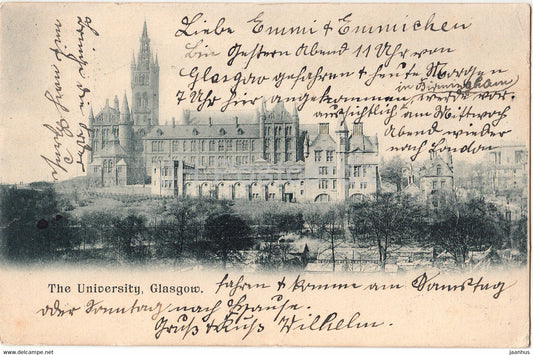 Liebe Emmi & Emmichen
bin Gestern Abend 11 Uhr von
Glasgow gefahren & heute Morgen
in Birmingham
7 Uhr hier angekommen, werde vor-
aussichtlich am Mittwoch
Abend wieder
nach London
The University, Glasgow.
fahren & komme am Samstag
oder Sonntag nach Hause.
Gruß & Kuß Wilhelm.
www.delcampe.net
jaanhus